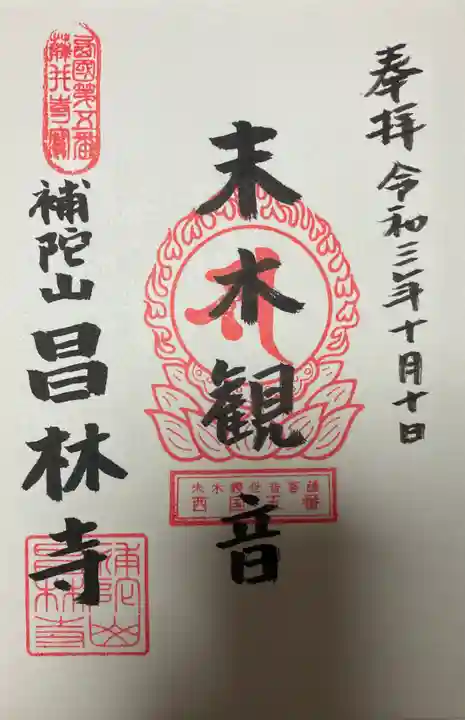 奉拝 令和三年十月十日
末木観音
末木観世音菩薩
西国五番
西國第五番
藤井寺寫
補陀山 昌林寺
補陀山
昌林寺